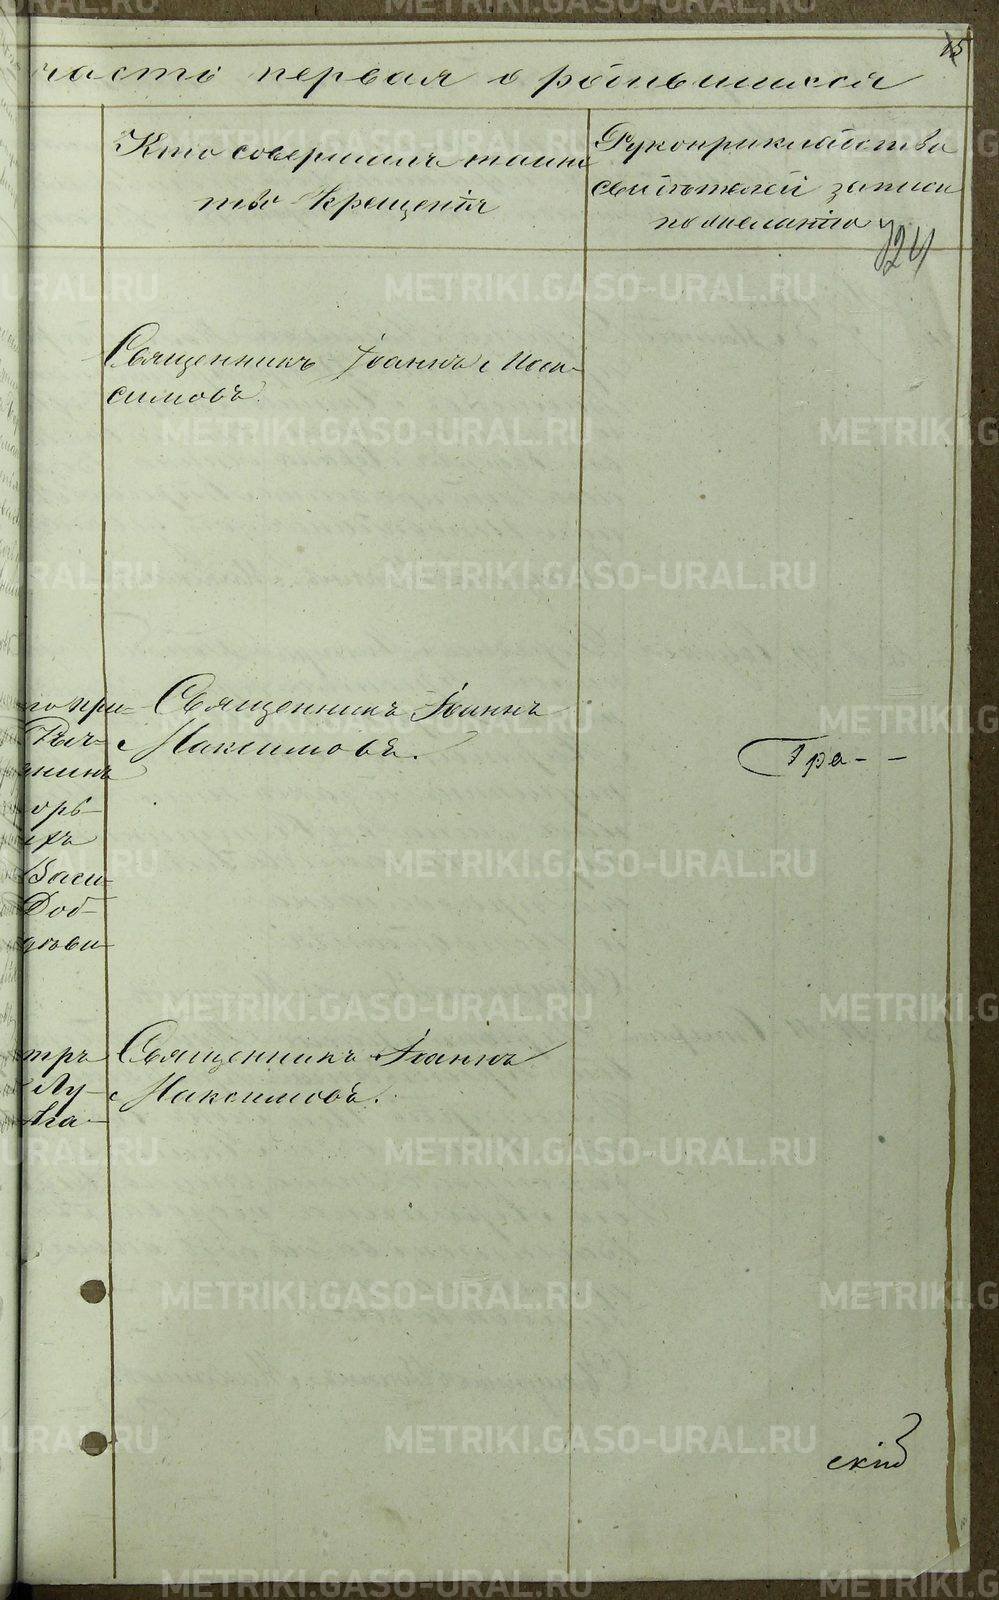 15
часть первая о родившихся
Кто совершалъ таинс
тво крещенія
Рукоприкладства
свидѣтелей записи
по желанію
324
Священникъ Іоаннъ Мак-
симовъ.
го при-
Священникъ Іоаннъ
Максимовъ.
Гра--
орь-
Васи-
Доб-
Священникъ Іоаннъ
Лу-
Максимовъ.
скій
METRIKI.GASO-URAL.RU